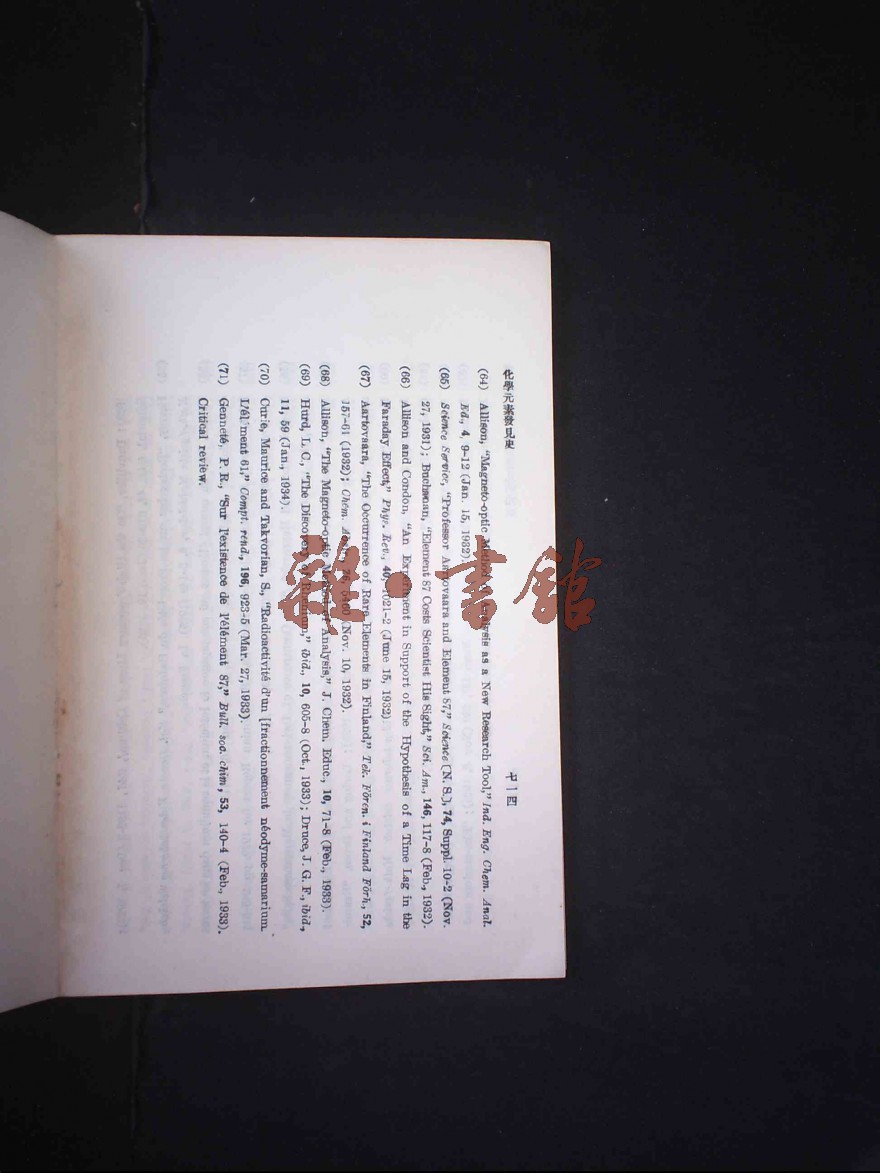 化學元素發見史
(64) Allison, "Magneto-optic Method of Analysis as a New Research Tool," Ind. Eng. Chem. Anal.
Ed., 4, 9-12 (Jan. 15, 1932).
(65) Science Service, "Professor Aartovaara and Element 87," Science [N. S.], 74, Suppl. 10-2 (Nov.
27, 1931); Buchanan, "Element 87 Costs Scientist His Sight," Sci. Am., 146, 117-8 (Feb., 1932).
(66) Allison and Condon, "An Experiment in Support of the Hypothesis of a Time Lag in the
Faraday Effect," Phys. Rev., 40, 1021-2 (June 15, 1932).
(67) Aartovaara, "The Occurrence of Rare Elements in Finland," Tek. Fören. i Finland Förh., 52,
157-61 (1932); Chem. (Nov. 10, 1932).
(68) Allison, "The Magneto-optic Method of Analysis," J. Chem. Educ., 10, 71-8 (Feb., 1933).
(69) Hurd, L. C., "The Discovery of Rhenium," ibid., 10, 605-8 (Oct., 1933); Druce, J. G. F., ibid.,
11, 59 (Jan., 1934).
(70) Curie, Maurice and Takvorian, S., "Radioactivité d'un [fractionnement néodyme-samarium.
L'él ment 61," Compt. rend., 196, 923-5 (Mar. 27, 1933).
(71) Genneté, P. R., "Sur l'existence de l'élément 87," Bull. soc. chim., 53, 140-4 (Feb., 1933).
Critical review.
書館